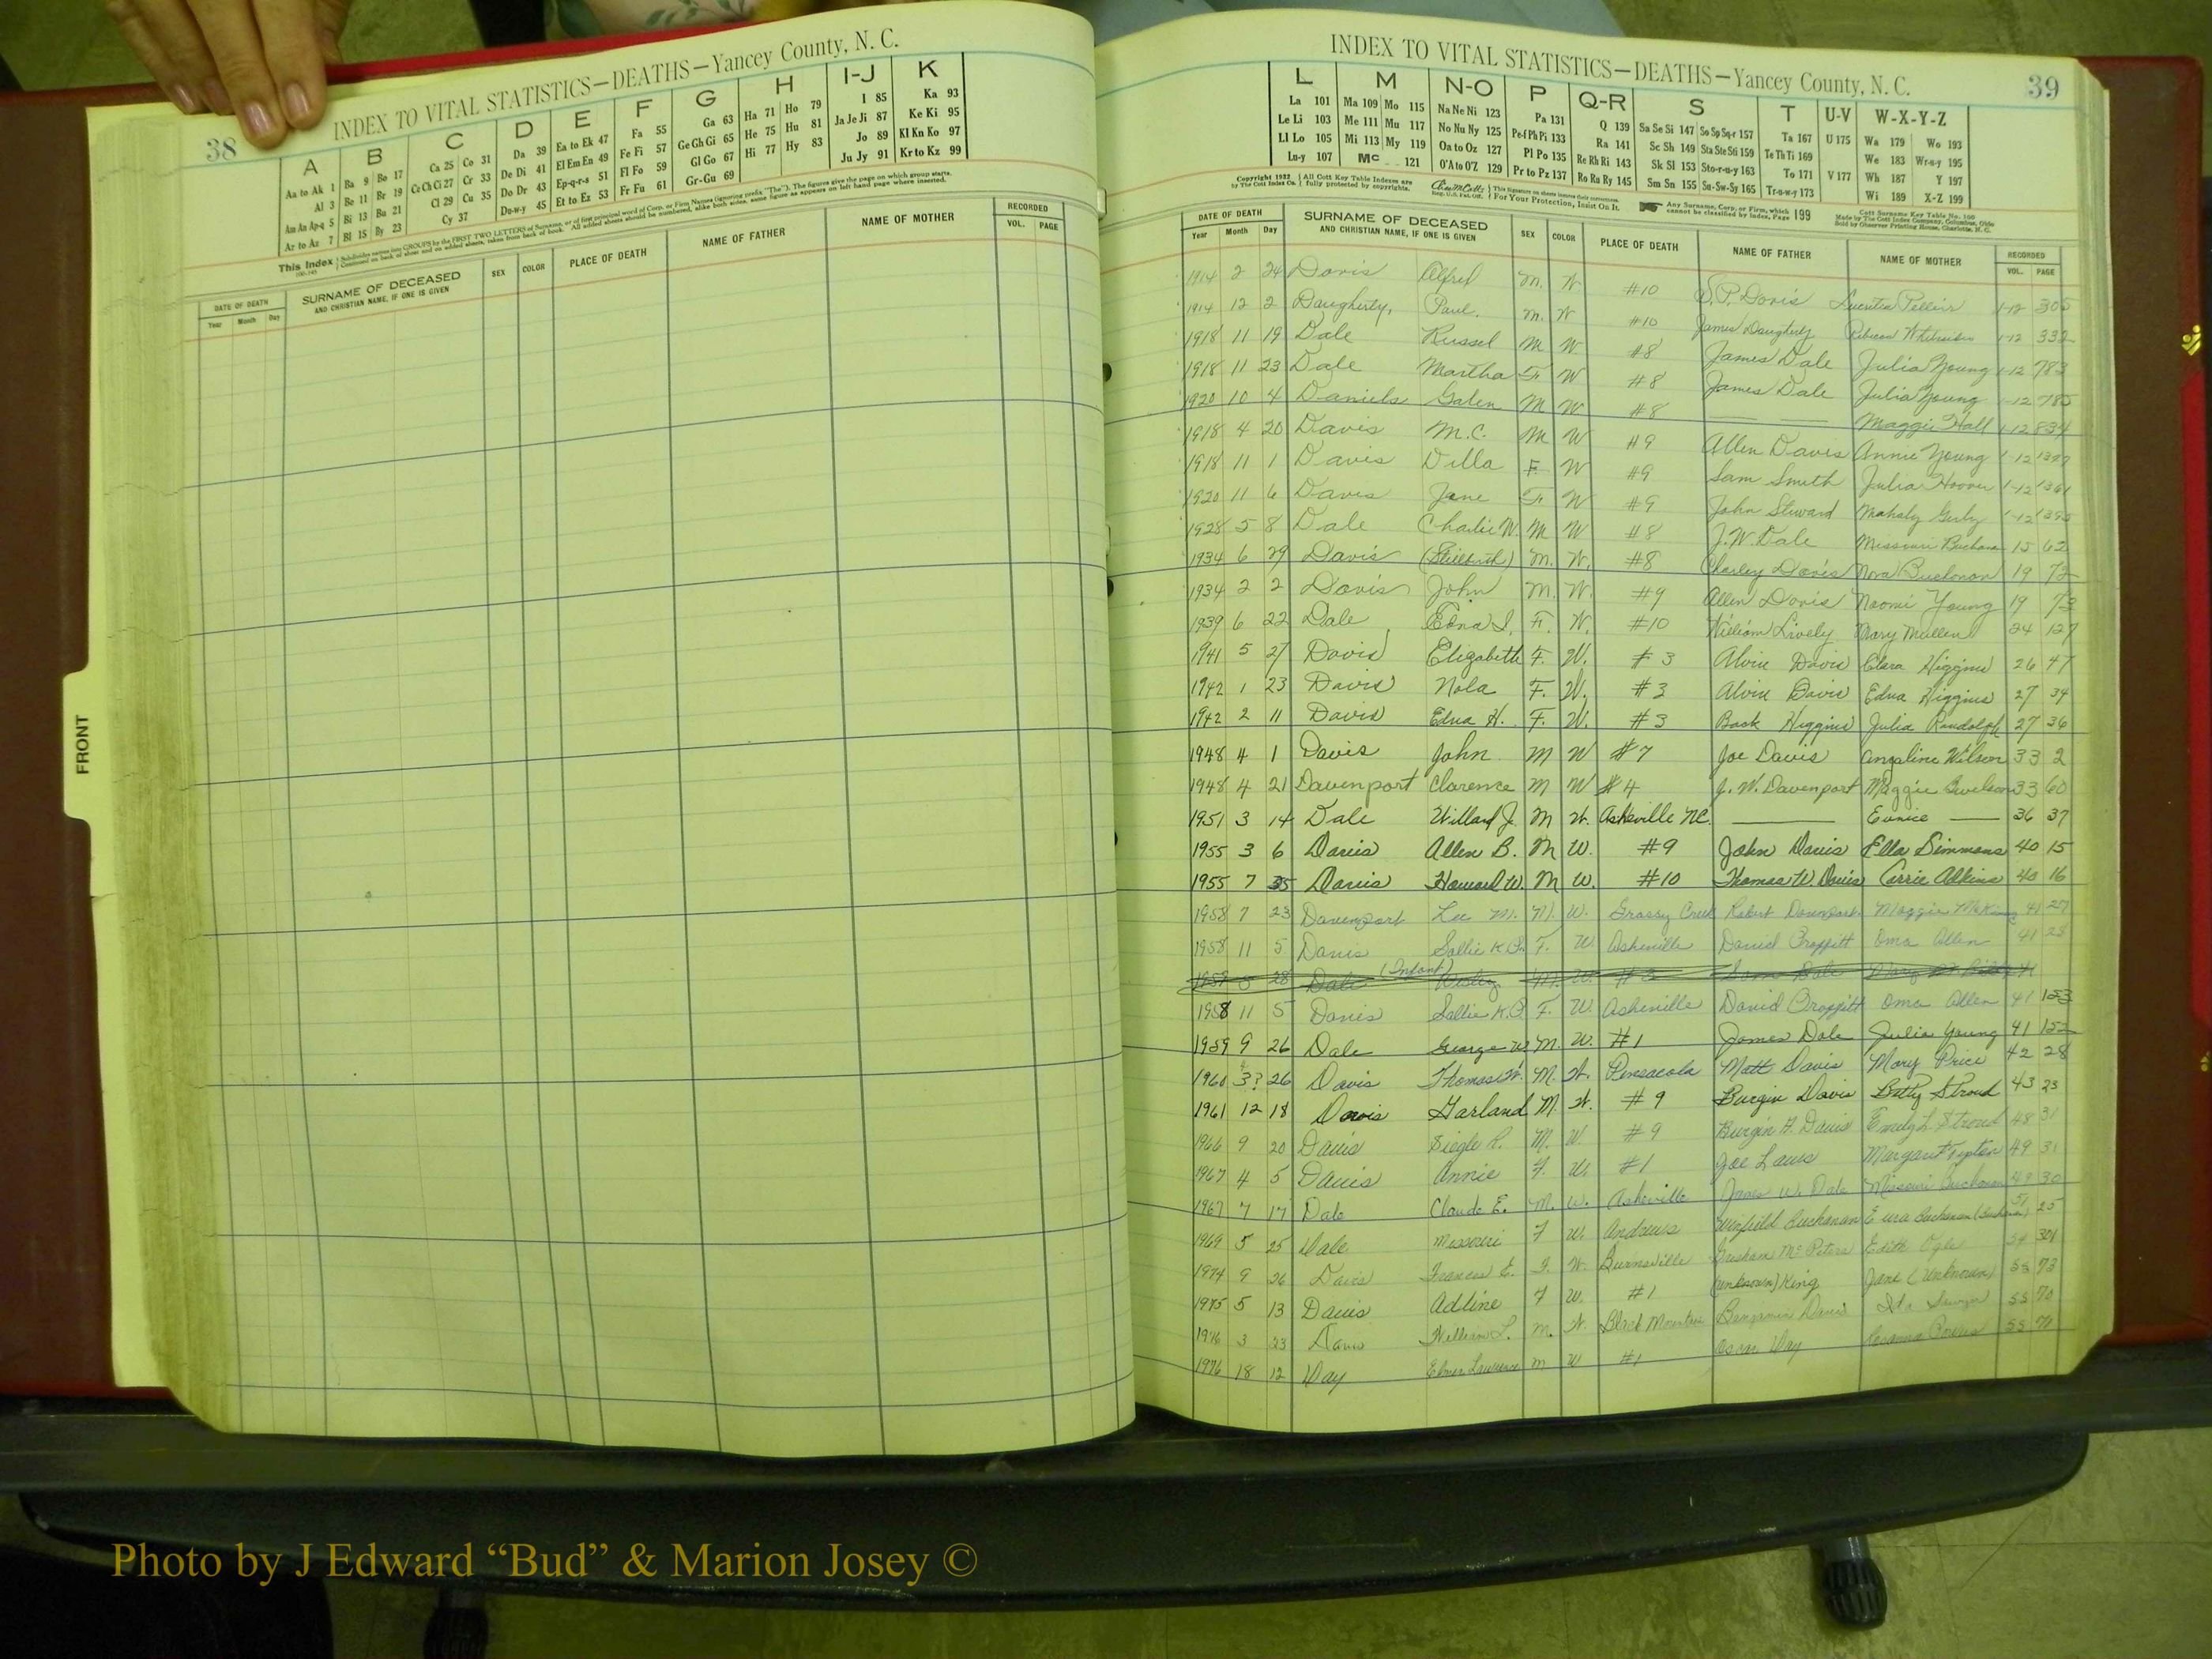 38
INDEX TO VITAL STATISTICS—DEATHS—Yancey County, N. C.
A B C D E F G H I-J K
Aa to Ak 1 Ba 9 Bo 17 Ca 25 Co 31 Da 39 Ea to Ek 47 Fa 55 Ga 63 Ha 71 Ho 79 I 85 Ka 93
Al 3 Be 11 Br 19 Ce Ch Ci 27 Cr 33 De Di 41 El Em En 49 Fe Fi 57 Ge Gh Gi 65 He 75 Hu 81 Ja Je Ji 87 Ke Ki 95
Am An Ap-q 5 Bi 13 Bu 21 Cl 29 Cu 35 Do Dr 43 Ep-q-r-s 51 Fl Fo 59 Gl Go 67 Hi 77 Hy 83 Jo 89 Kl Kn Ko 97
Ar to Az 7 Bl 15 By 23 Cy 37 Du-w-y 45 Et to Ez 53 Fr Fu 61 Gr-Gu 69 Ju Jy 91 Kr to Kz 99
This Index
DATE OF DEATH SURNAME OF DECEASED AND CHRISTIAN NAME, IF ONE IS GIVEN SEX COLOR PLACE OF DEATH NAME OF FATHER NAME OF MOTHER RECORDED
Year Month Day VOL. PAGE
FRONT
INDEX TO VITAL STATISTICS—DEATHS—Yancey County, N. C.
39
L M N-O P Q-R S T U-V W-X-Y-Z
La 101 Ma 109 Mo 115 Na Ne Ni 123 Pa 131 Q 139 Sa Se Si 147 So Sp Sq-r 157 Ta 167 U 175 Wa 179 Wo 193
Le Li 103 Me 111 Mu 117 No Nu Ny 125 Pe-f Ph Pi 133 Ra 141 Sc Sh 149 Sta Ste Sti 159 Te Th Ti 169 We 183 Wr-u-y 195
Ll Lo 105 Mi 113 My 119 Oa to Oz 127 Pl Po 135 Re Rh Ri 143 Sk Sl 153 Sto-r-u-y 163 To 171 V 177 Wh 187 Y 197
Lu-y 107 Mc 121 O'A to O'Z 129 Pr to Pz 137 Ro Ru Ry 145 Sm Sn 155 Su-Sw-Sy 165 Tr-u-w-y 173 Wi 189 X-Z 199
Copyright 1922 by The Cott Index Co. All Cott Key Table Indexes are fully protected by copyrights. For Your Protection, Insist On It. Any Surname, Corp. or Firm, which cannot be classified by Index, Page 199
DATE OF DEATH SURNAME OF DECEASED AND CHRISTIAN NAME, IF ONE IS GIVEN SEX COLOR PLACE OF DEATH NAME OF FATHER NAME OF MOTHER RECORDED
Year Month Day VOL. PAGE
1914 2 24 Davis Alfred M. W #10 S.P. Davis 1-12 305
1914 12 2 Daugherty, Paul. M. W #10 James Daugherty 1-12 332
1918 11 19 Dale Russel M W #8 James Dale Julia Young 1-12 783
1918 11 23 Dale Martha F W #8 James Dale Julia Young 1-12 785
1920 10 4 Daniels Galen M W #8 —— Maggie Hall 1-12 834
1918 4 20 Davis M.C. M W #9 Allen Davis Annie Young 1-12
1918 11 1 Davis Della F. W #9 Sam Smith Julia Hoover 1-12 1361
1920 11 6 Davis Jane F. W #9 John Steward Mahaly 1-12 1395
1928 5 8 Dale Charlie W. M W #8 J.W. Dale Missouri 15 62
1934 6 29 Davis (Stillbirth) M. W. #8 Charley Davis Nora Buchanan 19 72
1934 2 2 Davis John M. W. #9 Allen Davis Naomi Young 19 73
1939 6 22 Dale Edna I. F. W. #10 William Lively Mary Mullen 24 127
1941 5 27 Davis Elizabeth F. W. #3 Alvin Davis Clara Higgins 26 47
1942 1 23 Davis Nola F. W. #3 Alvin Davis Edna Higgins 27 34
1942 2 11 Davis Edna H. F. W. #3 Back Higgins Julia Randolph 27 36
1948 4 1 Davis John M W #7 Joe Davis Angaline Wilson 33 2
1948 4 21 Davenport Clarence M W #4 J. W. Davenport Maggie 33 60
1951 3 14 Dale Willard J. M W. Asheville N.C. —— Eunice —— 36 37
1955 3 6 Davis Allen B. M W. #9 John Davis Ella Simmons 40 15
1955 7 Davis Howard W. M W. #10 Thomas W. Davis Carrie Adkins 40 16
1958 7 23 Davenport Lee M. M. W. Grassy Creek Robert Davenport Maggie 41 27
1958 11 5 Davis Sallie K.P. F. W. Asheville David Proffitt Oma Allen 41 28
1958 5 28 Dale (Infant) Wesley M. W. #3 Sam Dale Mary 41
1958 11 5 Davis Sallie K.P. F. W. Asheville David Proffitt Oma Allen 41 153
1959 9 26 Dale George W. M W. #1 James Dale Julia Young 41 152
1960 3? 26 Davis Thomas W. M. W. Pensacola Matt Davis Mary Price 42 28
1961 12 18 Davis Harland M. W. #9 Burgin Davis Betty Stroud 43 23
1966 9 20 Davis Siegle R. M. W. #9 Burgin H. Davis Stroud 48 31
1967 4 5 Davis Annie F. W. #1 Joe Laws Margaret Tipton 49 31
1967 7 17 Dale Claude E. M. W. Asheville James W. Dale Missouri Buchanan 49 30
1969 5 25 Dale Missouri F W. Andrews Winfield Buchanan Buchanan 51 25
1974 9 26 Davis Frances E. F. W. Burnsville McPeters Edith Ogle 54 301
1975 5 13 Davis Adline F W. #1 (Unknown) King Jane (Unknown) 55 73
1976 3 23 Davis William L. M. W. Black Mountain Benjamin Davis Ida 55 70
1976 18 12 Day Elmer Lawrence M W #1 Oscar Day 55
Photo by J Edward “Bud” & Marion Josey ©